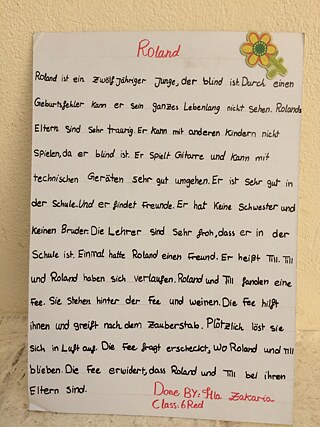 Roland
Roland ist ein zwölfjähriger Junge, der blind ist. Durch einen
Geburtsfehler kann er sein ganzes Lebenlang nicht sehen. Rolands
Eltern sind sehr traurig. Er kann mit anderen Kindern nicht
spielen, da er blind ist. Er spielt Gitarre und kann mit
technischen Geräten sehr gut umgehen. Er ist sehr gut in
der Schule. Und er findet Freunde. Er hat keine Schwester und
keinen Bruder. Die Lehrer sind sehr froh, dass er in der
Schule ist. Einmal hatte Roland einen Freund. Er heißt Till. Till
und Roland haben sich verlaufen. Roland und Till fanden eine
Fee. Sie stehen hinter der Fee und weinen. Die Fee hilft
ihnen und greift nach dem Zauberstab. Plötzlich löst sie
sich in Luft auf. Die Fee fragt erscheckt, wo Roland und Till
blieben. Die Fee erwidert, dass Roland und Till bei ihren
Eltern sind.
Done By: Zakaria
Class: 6 Red